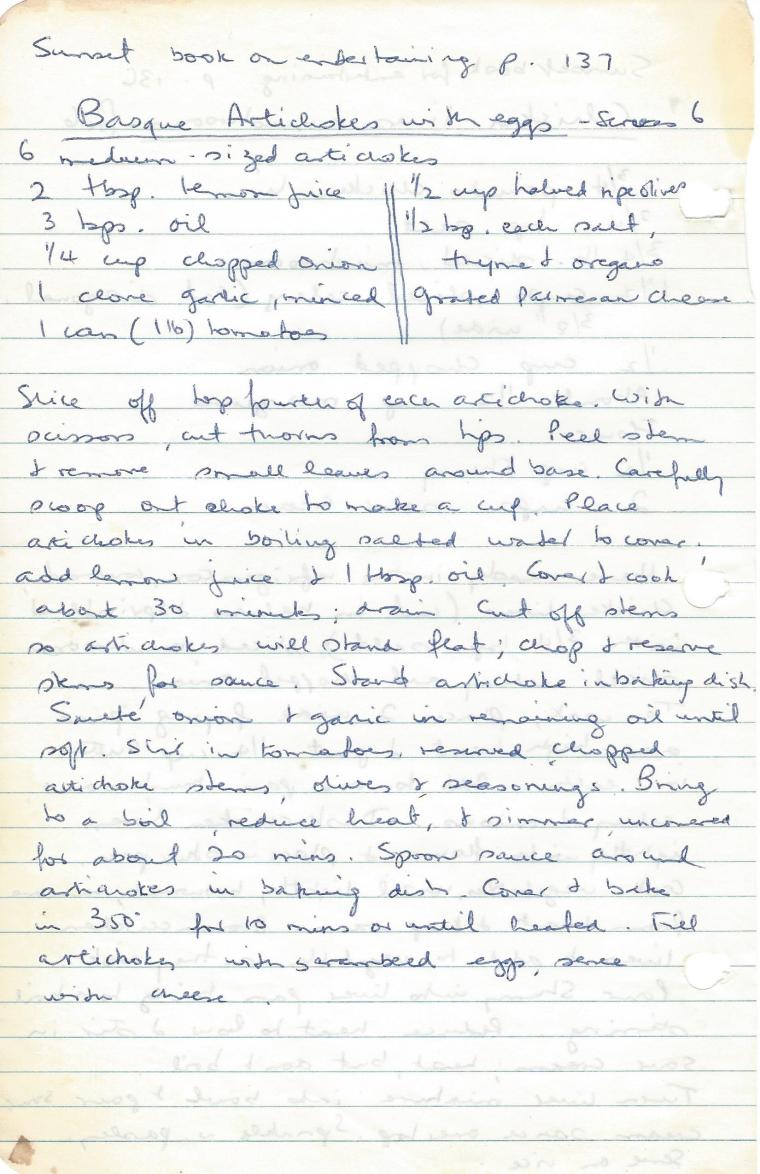 Sunset book on entertaining p. 137
Basque Artichokes with eggs - Serves 6
6 medium-sized artichokes
2 tbsp. lemon juice
3 tsps. oil
1/4 cup chopped onion
1 clove garlic, minced
1 can (1 lb) tomatoes
1/2 cup halved ripe olives
1/2 tsp. each salt,
thyme & oregano
grated Parmesan cheese
Slice off top fourth of each artichoke. With
scissors, cut thorns from tips. Peel stem
& remove small leaves around base. Carefully
scoop out choke to make a cup. Place
artichokes in boiling salted water to cover.
add lemon juice & 1 tbsp. oil. Cover & cook
about 30 minutes; drain. Cut off stems
so artichokes will stand flat; chop & reserve
stems for sauce. Stand artichoke in baking dish.
Sauté onion & garlic in remaining oil until
soft. Stir in tomatoes, reserved chopped
artichoke stems, olives & seasonings. Bring
to a boil, reduce heat, & simmer, uncovered
for about 20 mins. Spoon sauce around
artichokes in baking dish. Cover & bake
in 350° for 10 mins or until heated. Fill
artichokes with scrambled eggs, serve
with cheese.